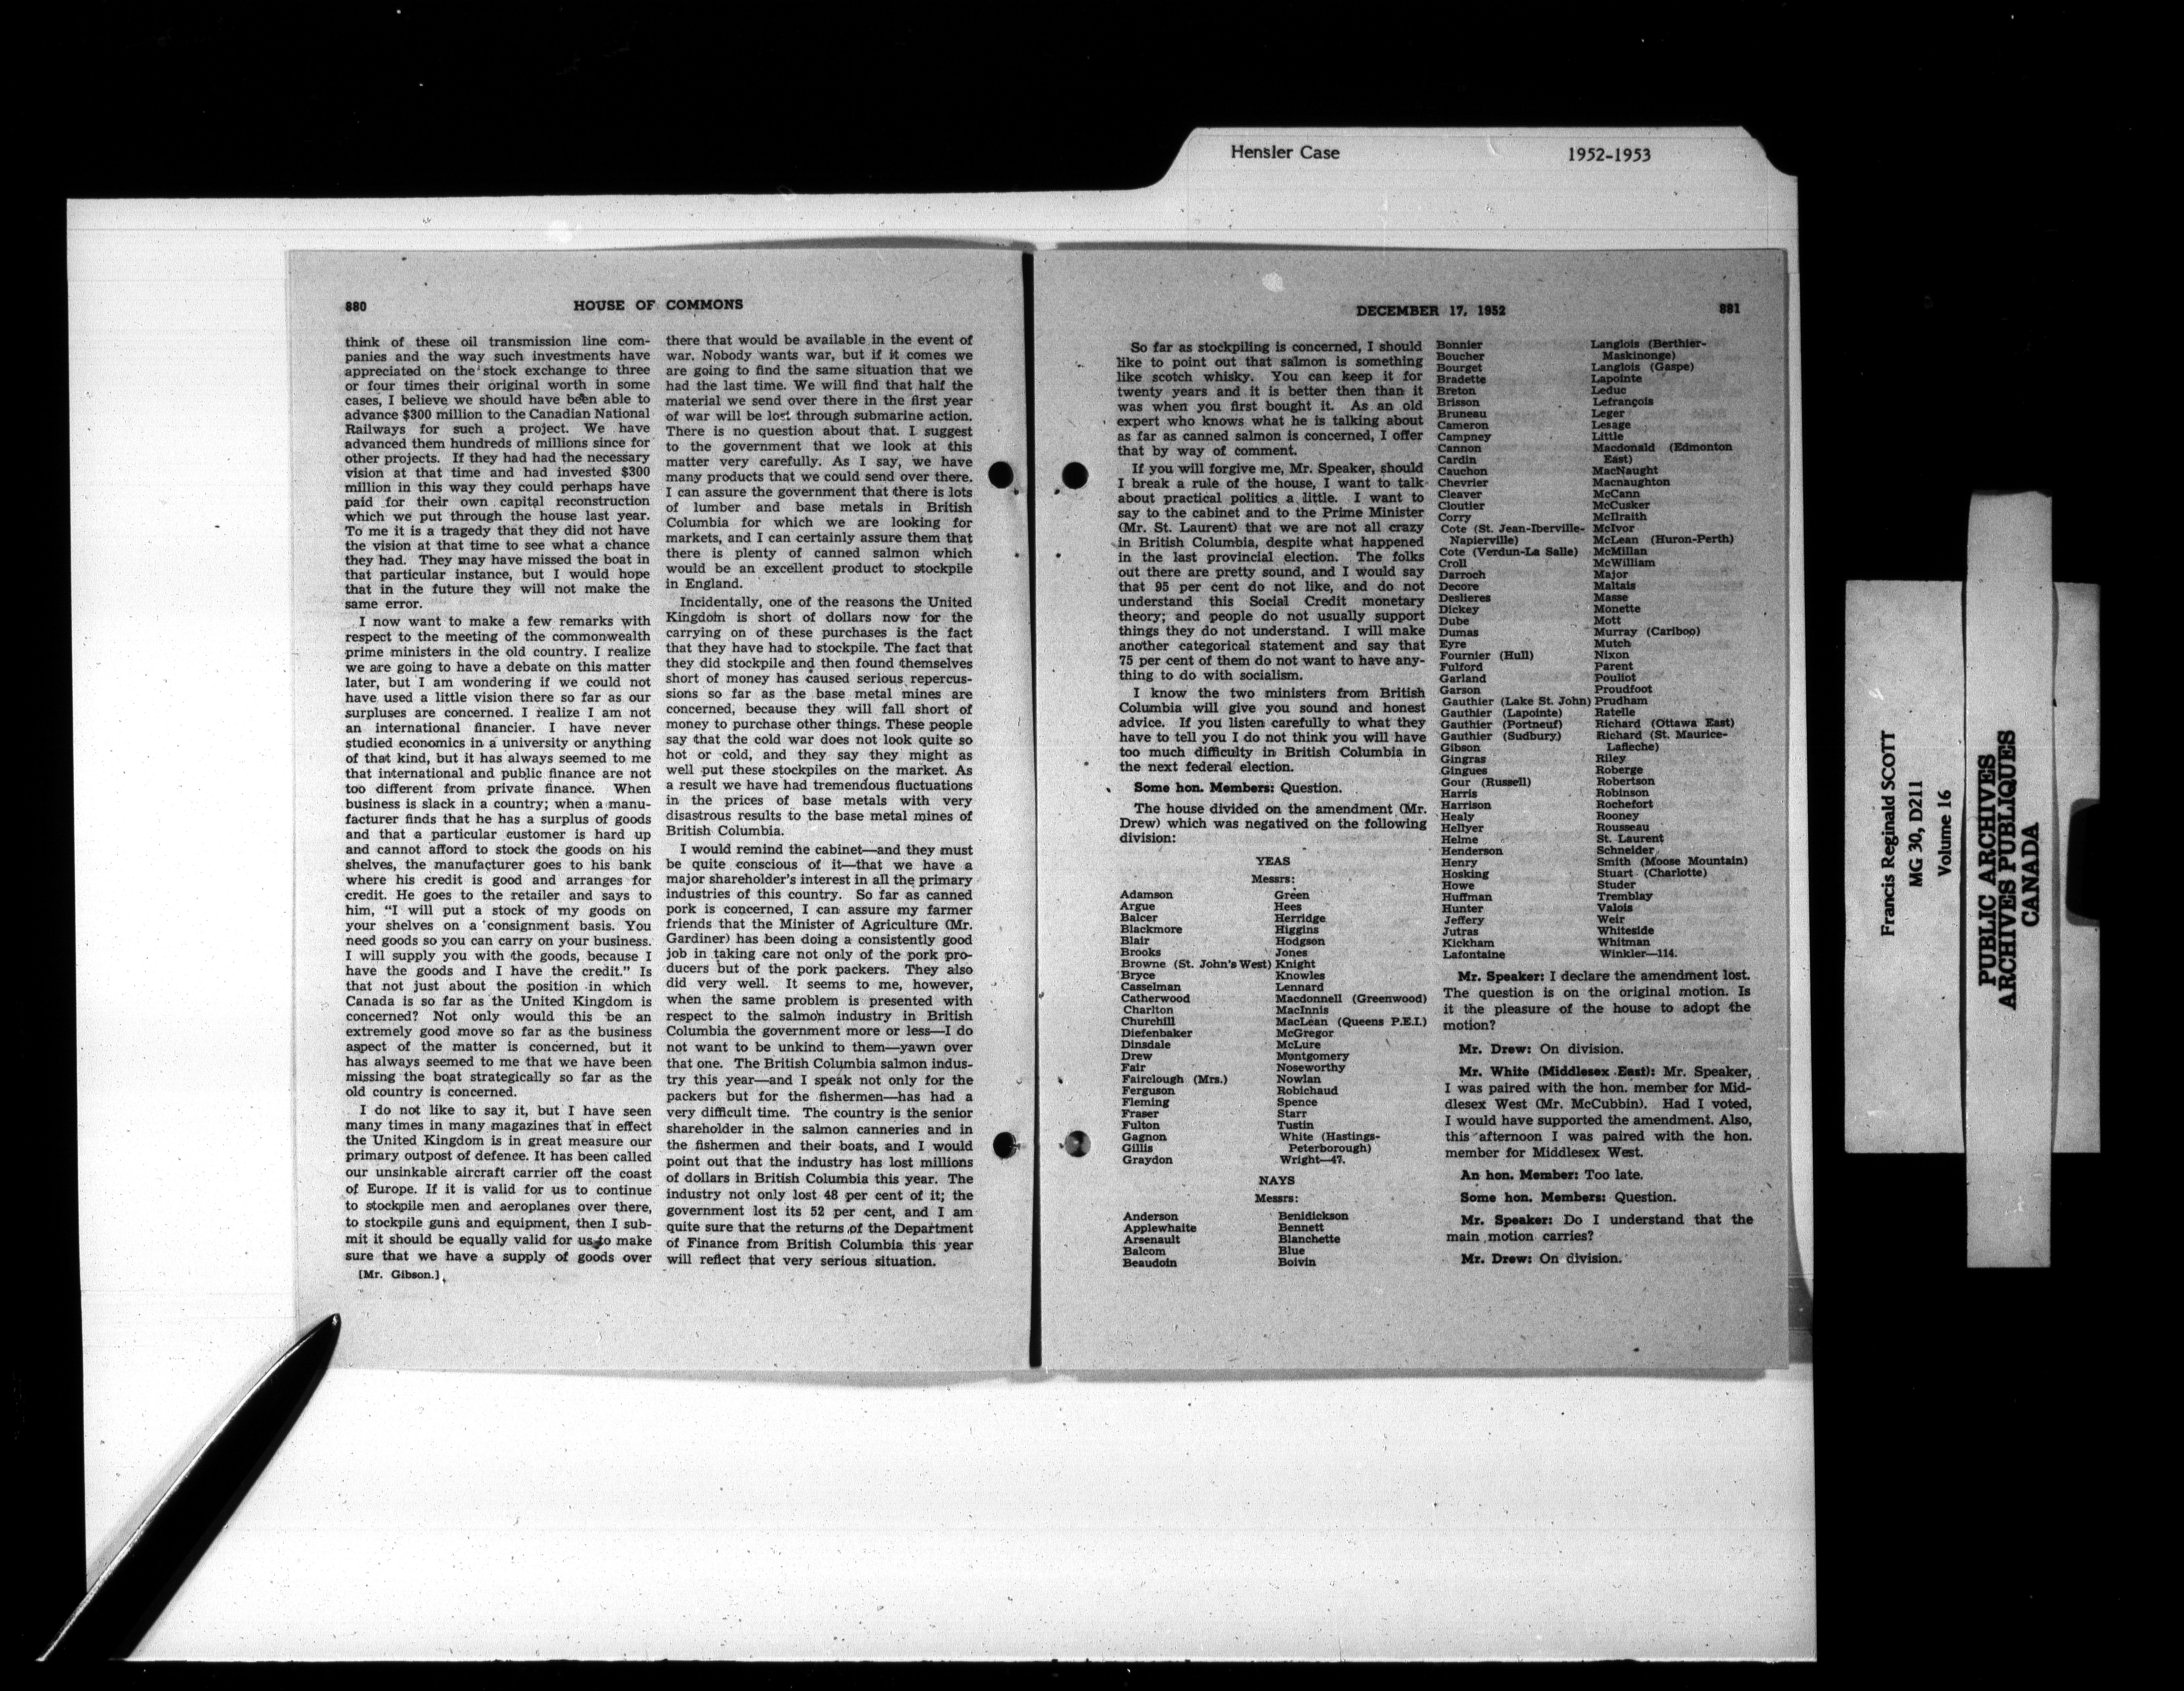 Hensler Case 1952-1953
880 HOUSE OF COMMONS
think of these oil transmission line com-
panies and the way such investments have
appreciated on the stock exchange to three
or four times their original worth in some
cases, I believe we should have been able to
advance $300 million to the Canadian National
Railways for such a project. We have
advanced them hundreds of millions since for
other projects. If they had had the necessary
vision at that time and had invested $300
million in this way they could perhaps have
paid for their own capital reconstruction
which we put through the house last year.
To me it is a tragedy that they did not have
the vision at that time to see what a chance
they had. They may have missed the boat in
that particular instance, but I would hope
that in the future they will not make the
same error.
I now want to make a few remarks with
respect to the meeting of the commonwealth
prime ministers in the old country. I realize
we are going to have a debate on this matter
later, but I am wondering if we could not
have used a little vision there so far as our
surpluses are concerned. I realize I am not
an international financier. I have never
studied economics in a university or anything
of that kind, but it has always seemed to me
that international and public finance are not
too different from private finance. When
business is slack in a country; when a manu-
facturer finds that he has a surplus of goods
and that a particular customer is hard up
and cannot afford to stock the goods on his
shelves, the manufacturer goes to his bank
where his credit is good and arranges for
credit. He goes to the retailer and says to
him, "I will put a stock of my goods on
your shelves on a consignment basis. You
need goods so you can carry on your business.
I will supply you with the goods, because I
have the goods and I have the credit." Is
that not just about the position in which
Canada is so far as the United Kingdom is
concerned? Not only would this be an
extremely good move so far as the business
aspect of the matter is concerned, but it
has always seemed to me that we have been
missing the boat strategically so far as the
old country is concerned.
I do not like to say it, but I have seen
many times in many magazines that in effect
the United Kingdom is in great measure our
primary outpost of defence. It has been called
our unsinkable aircraft carrier off the coast
of Europe. If it is valid for us to continue
to stockpile men and aeroplanes over there,
to stockpile guns and equipment, then I sub-
mit it should be equally valid for us to make
sure that we have a supply of goods over
[Mr. Gibson.]
there that would be available in the event of
war. Nobody wants war, but if it comes we
are going to find the same situation that we
had the last time. We will find that half the
material we send over there in the first year
of war will be lost through submarine action.
There is no question about that. I suggest
to the government that we look at this
matter very carefully. As I say, we have
many products that we could send over there.
I can assure the government that there is lots
of lumber and base metals in British
Columbia for which we are looking for
markets, and I can certainly assure them that
there is plenty of canned salmon which
would be an excellent product to stockpile
in England.
Incidentally, one of the reasons the United
Kingdom is short of dollars now for the
carrying on of these purchases is the fact
that they have had to stockpile. The fact that
they did stockpile and then found themselves
short of money has caused serious repercus-
sions so far as the base metal mines are
concerned, because they will fall short of
money to purchase other things. These people
say that the cold war does not look quite so
hot or cold, and they say they might as
well put these stockpiles on the market. As
a result we have had tremendous fluctuations
in the prices of base metals with very
disastrous results to the base metal mines of
British Columbia.
I would remind the cabinet—and they must
be quite conscious of it—that we have a
major shareholder's interest in all the primary
industries of this country. So far as canned
pork is concerned, I can assure my farmer
friends that the Minister of Agriculture (Mr.
Gardiner) has been doing a consistently good
job in taking care not only of the pork pro-
ducers but of the pork packers. They also
did very well. It seems to me, however,
when the same problem is presented with
respect to the salmon industry in British
Columbia the government more or less—I do
not want to be unkind to them—yawn over
that one. The British Columbia salmon indus-
try this year—and I speak not only for the
packers but for the fishermen—has had a
very difficult time. The country is the senior
shareholder in the salmon canneries and in
the fishermen and their boats, and I would
point out that the industry has lost millions
of dollars in British Columbia this year. The
industry not only lost 48 per cent of it; the
government lost its 52 per cent, and I am
quite sure that the returns of the Department
of Finance from British Columbia this year
will reflect that very serious situation.
DECEMBER 17, 1952 881
So far as stockpiling is concerned, I should
like to point out that salmon is something
like scotch whisky. You can keep it for
twenty years and it is better then than it
was when you first bought it. As an old
expert who knows what he is talking about
as far as canned salmon is concerned, I offer
that by way of comment.
If you will forgive me, Mr. Speaker, should
I break a rule of the house, I want to talk
about practical politics a little. I want to
say to the cabinet and to the Prime Minister
(Mr. St. Laurent) that we are not all crazy
in British Columbia, despite what happened
in the last provincial election. The folks
out there are pretty sound, and I would say
that 95 per cent do not like, and do not
understand this Social Credit monetary
theory; and people do not usually support
things they do not understand. I will make
another categorical statement and say that
75 per cent of them do not want to have any-
thing to do with socialism.
I know the two ministers from British
Columbia will give you sound and honest
advice. If you listen carefully to what they
have to tell you I do not think you will have
too much difficulty in British Columbia in
the next federal election.
Some hon. Members: Question.
The house divided on the amendment (Mr.
Drew) which was negatived on the following
division:
YEAS
Messrs:
Adamson
Argue
Balcer
Blackmore
Blair
Brooks
Browne (St. John's West)
Bryce
Casselman
Catherwood
Charlton
Churchill
Diefenbaker
Dinsdale
Drew
Fair
Fairclough (Mrs.)
Ferguson
Fleming
Fraser
Fulton
Gagnon
Gillis
Graydon
Green
Hees
Herridge
Higgins
Hodgson
Jones
Knight
Knowles
Lennard
Macdonnell (Greenwood)
MacInnis
MacLean (Queens P.E.I.)
McGregor
McLure
Montgomery
Noseworthy
Nowlan
Robichaud
Spence
Starr
Tustin
White (Hastings-
Peterborough)
Wright—47.
NAYS
Messrs:
Anderson
Applewhaite
Arsenault
Balcom
Beaudoin
Benidickson
Bennett
Blanchette
Blue
Boivin
Bonnier
Boucher
Bourget
Bradette
Breton
Brisson
Bruneau
Cameron
Campney
Cannon
Cardin
Cauchon
Chevrier
Cleaver
Cloutier
Corry
Cote (St. Jean-Iberville-
Napierville)
Cote (Verdun-La Salle)
Croll
Darroch
Decore
Deslieres
Dickey
Dube
Dumas
Eyre
Fournier (Hull)
Fulford
Garland
Garson
Gauthier (Lake St. John)
Gauthier (Lapointe)
Gauthier (Portneuf)
Gauthier (Sudbury)
Gibson
Gingras
Gingues
Gour (Russell)
Harris
Harrison
Healy
Hellyer
Helme
Henderson
Henry
Hosking
Howe
Huffman
Hunter
Jeffery
Jutras
Kickham
Lafontaine
Langlois (Berthier-
Maskinonge)
Langlois (Gaspe)
Lapointe
Leduc
Lefrançois
Leger
Lesage
Little
Macdonald (Edmonton
East)
MacNaught
Macnaughton
McCann
McCusker
McIlraith
McIvor
McLean (Huron-Perth)
McMillan
McWilliam
Major
Maltais
Masse
Monette
Mott
Murray (Cariboo)
Mutch
Nixon
Parent
Pouliot
Proudfoot
Prudham
Ratelle
Richard (Ottawa East)
Richard (St. Maurice-
Lafleche)
Riley
Roberge
Robertson
Robinson
Rochefort
Rooney
Rousseau
St. Laurent
Schneider
Smith (Moose Mountain)
Stuart (Charlotte)
Studer
Tremblay
Valois
Weir
Whiteside
Whitman
Winkler—114.
Mr. Speaker: I declare the amendment lost.
The question is on the original motion. Is
it the pleasure of the house to adopt the
motion?
Mr. Drew: On division.
Mr. White (Middlesex East): Mr. Speaker,
I was paired with the hon. member for Mid-
dlesex West (Mr. McCubbin). Had I voted,
I would have supported the amendment. Also,
this afternoon I was paired with the hon.
member for Middlesex West.
An hon. Member: Too late.
Some hon. Members: Question.
Mr. Speaker: Do I understand that the
main motion carries?
Mr. Drew: On division.
Francis Reginald SCOTT
MG 30, D211
Volume 16
PUBLIC ARCHIVES
ARCHIVES PUBLIQUES
CANADA